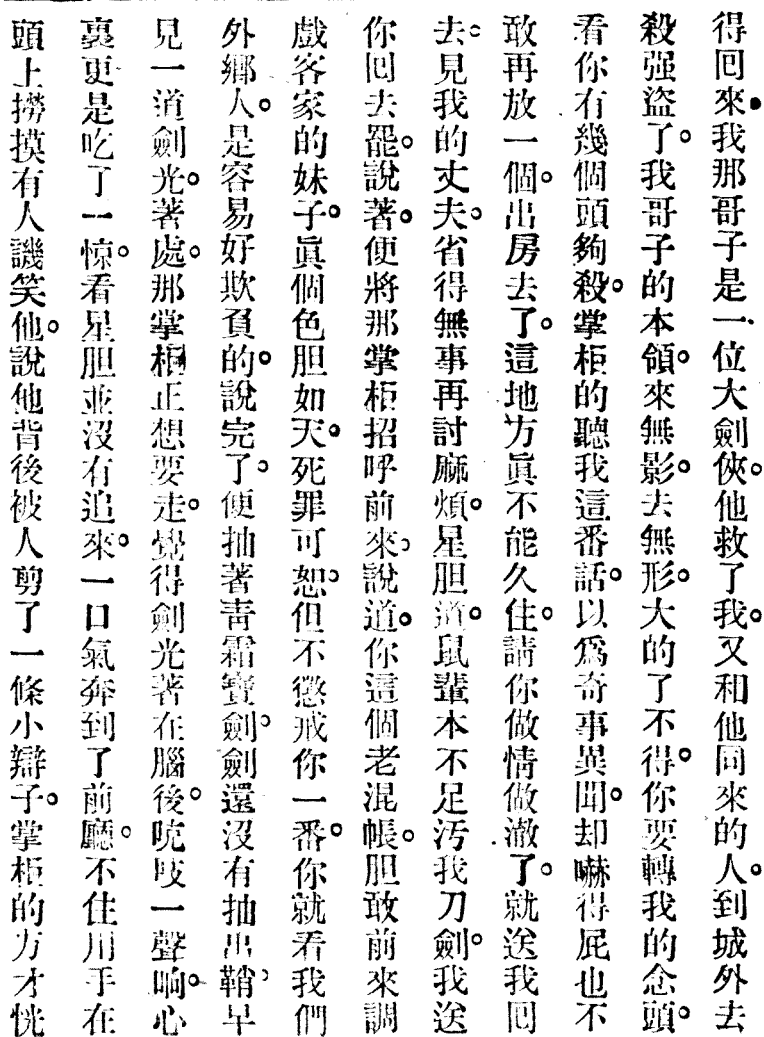 得囘來我那哥子是一位大劍俠。他救了我。又和他同來的人。到城外去
殺强盜了。我哥子的本領。來無影。去無形。大的了不得。你要轉我的念頭。
看你有幾個頭夠殺。掌柜的聽我這番話。以爲奇事異聞。却嚇得屁也不
敢再放一個。出房去了。這地方眞不能久住。請你做情做澈了。就送我囘
去。見我的丈夫。省得無事再討麻煩。星胆道。鼠輩本不足汚我刀劍。我送
你囘去罷。說著。便將那掌柜招呼前來。說道。你這個老混帳。胆敢前來調
戲客家的妹子。眞個色胆如天。死罪可恕。但不懲戒你一番。你就看我們
外鄉人。是容易好欺負的。說完了。便抽著靑霜寶劍。劍還沒有抽出鞘。早
見一道劍光。著處。那掌柜正想要走。覺得劍光著在腦後。吭吱一聲响。心
裏更是吃了一惊。看星胆並沒有追來。一口氣奔到了前廳。不住用手在
頭上撈摸有人譏笑他。說他背後被人剪了一條小辮子。掌柜的方才恍